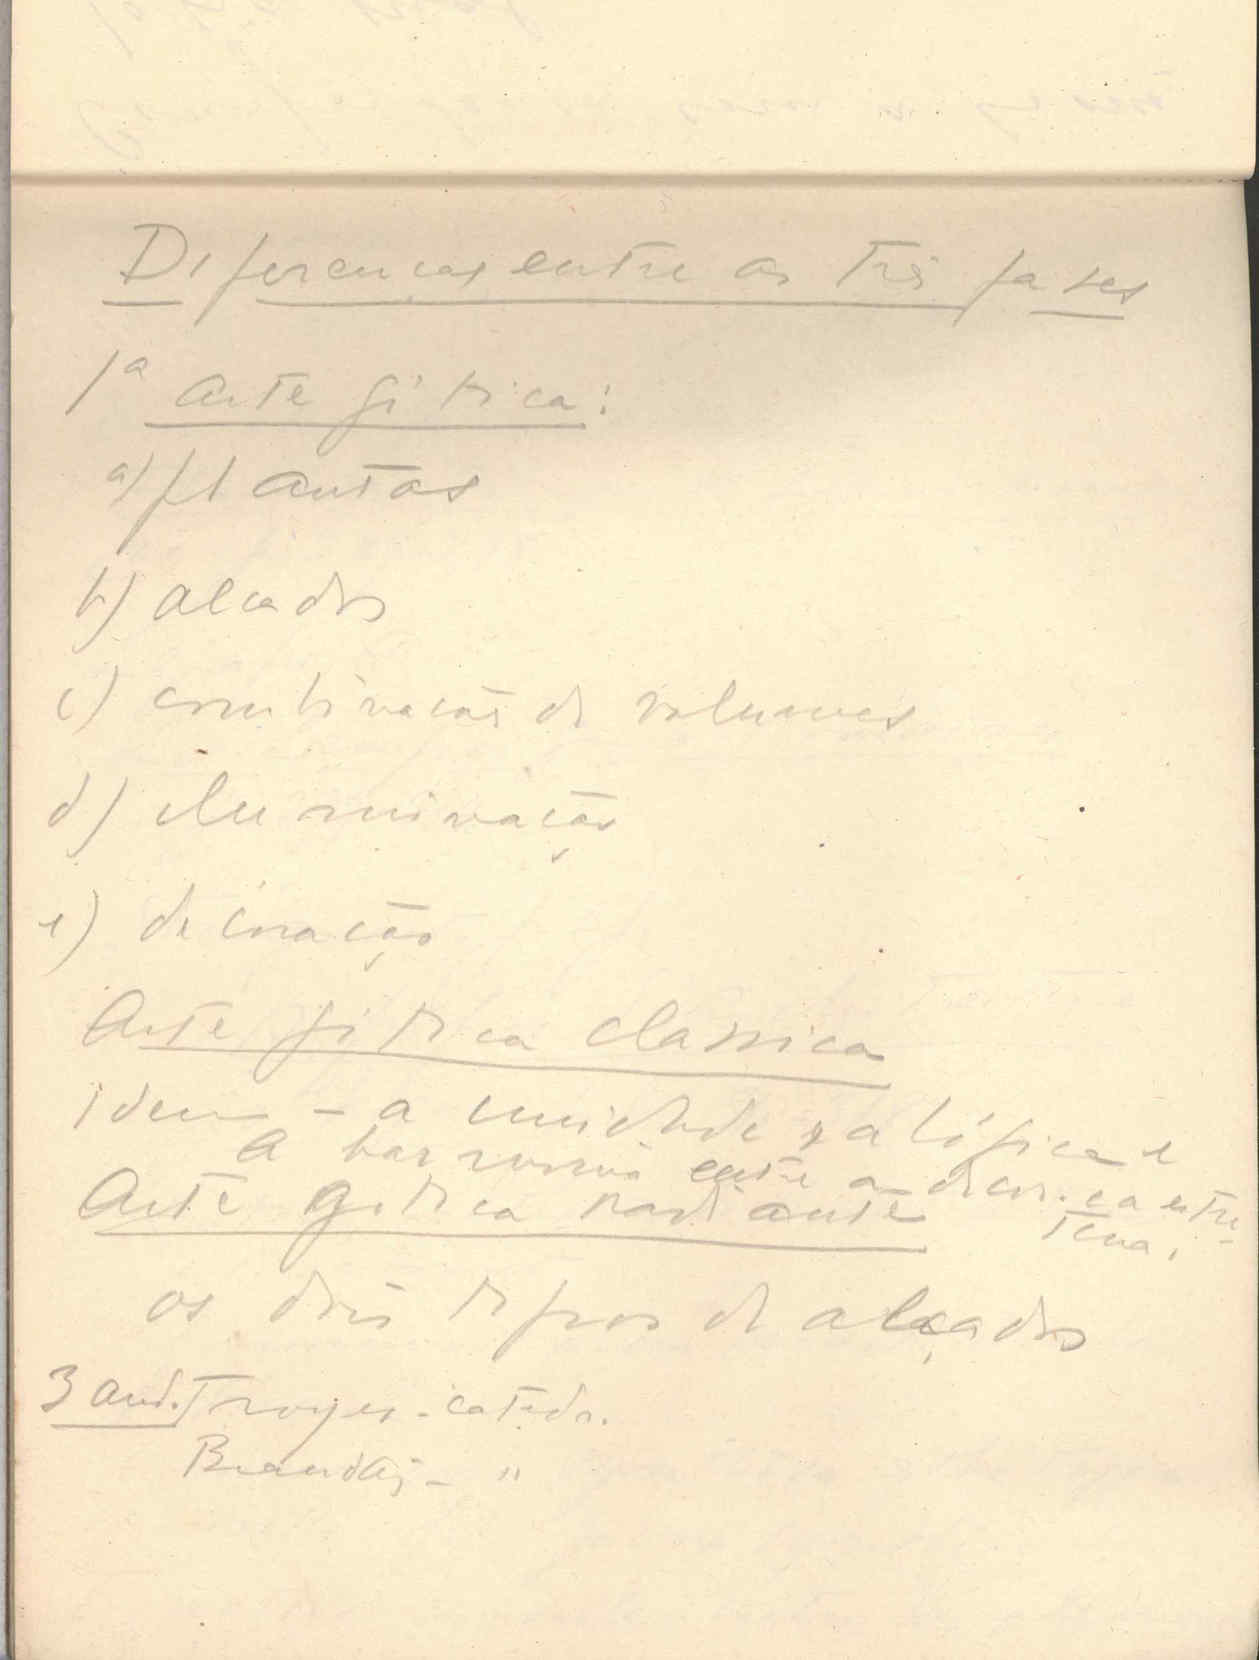 Diferenças entre as três fases
1ª arte gótica:
a) plantas
b) alçados
c) combinação de volumes
d) iluminação
e) decoração
Arte gótica classica
idem - a unidade, a lógica e
a harmonia entre a decor. e a estru-
tura.
Arte gótica radiante
os dois tipos de alçados
3 and. Troyes - catedr.
Beauvais - "